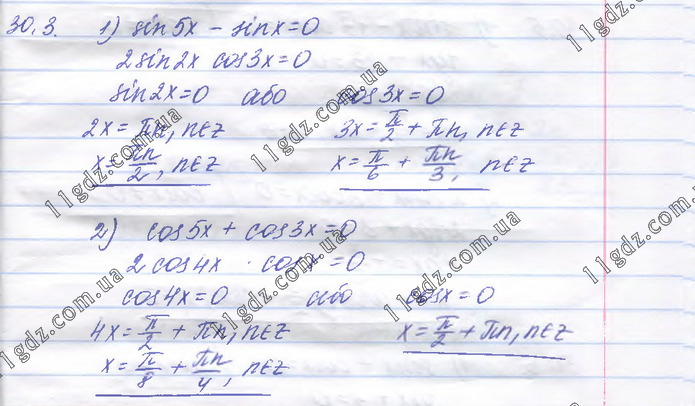 30.3. 1) sin5x - sinx = 0
2sin2x cos3x = 0
sin2x = 0 або cos3x = 0
2x = πn, n∈Z 3x = π/2 + πn, n∈Z
x = πn/2, n∈Z x = π/6 + πn/3, n∈Z
2) cos5x + cos3x = 0
2cos4x · cosx = 0
cos4x = 0 або cosx = 0
4x = π/2 + πn, n∈Z x = π/2 + πn, n∈Z
x = π/8 + πn/4, n∈Z
11gdz.com.ua
11gdz.com.ua
11gdz.com.ua
11gdz.com.ua
11gdz.com.ua
11gdz.com.ua